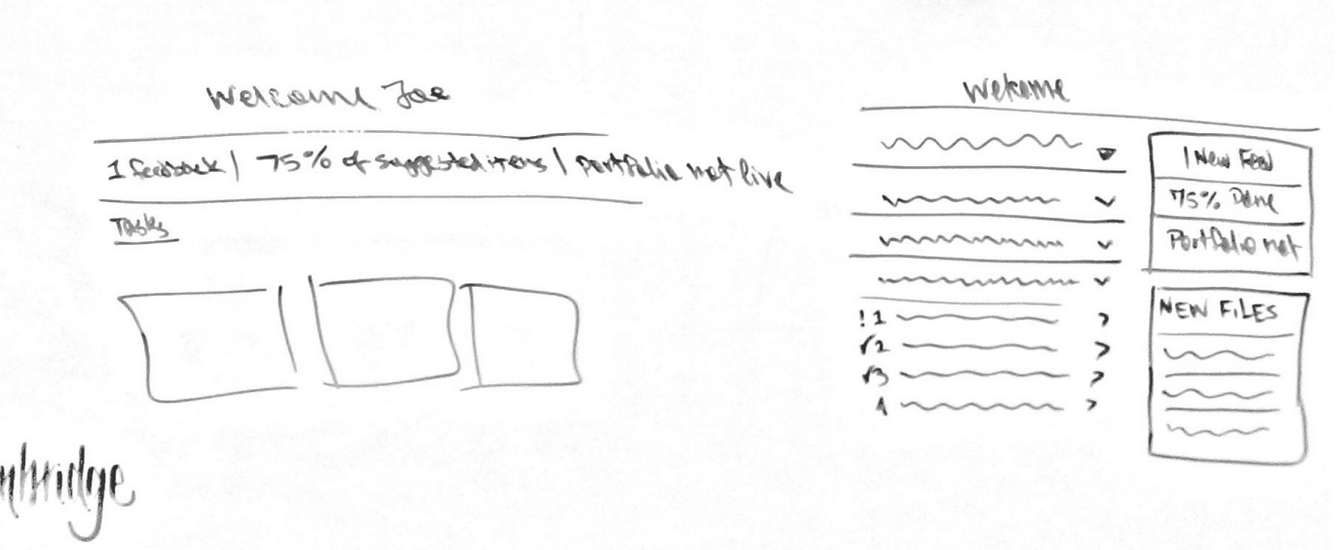 Welcome Joe
1 feedback | 75% of suggested items | portfolio not live
Tasks
Welcome
1 New Feed
75% Done
Portfolio not
NEW FILES
! 1
√2
√3
4